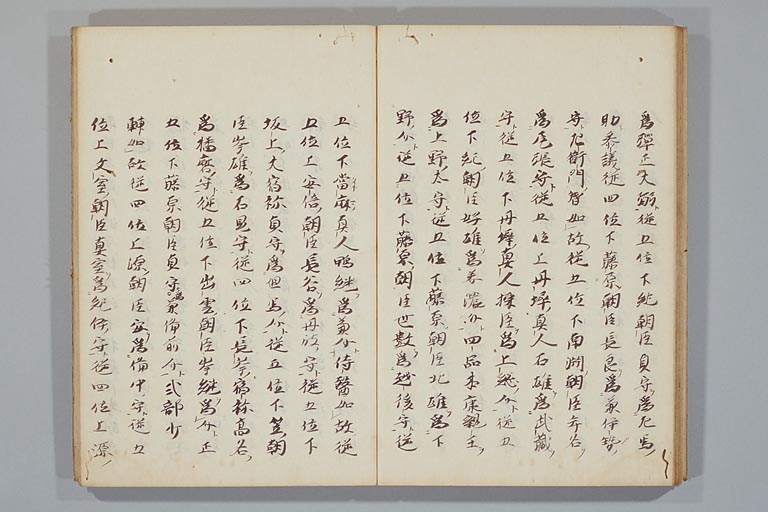 為彈正大弼從五位下紀朝臣貞守為左馬
助参議從四位下藤原朝臣長良為兼伊勢
守左衛門督如故從五位下南淵朝臣年名
為尾張守從五位上丹墀真人石雄為武藏
守從五位下丹墀真人棟臣為上総介從五
位下紀朝臣好雄為美濃介四品本康親王
為上野太守從五位下藤原朝臣北雄為下
野介從五位下藤原朝臣世数為越後守從
五位下當麻真人鴨継為兼介侍醫如故從
五位上安倍朝臣長谷為丹波守從五位下
坂上大宿祢貞守為但馬介從五位下笠朝
臣岑雄為石見守從四位下長岑宿祢高名
為播磨守從五位下出雲朝臣岑継為介正
五位下藤原朝臣貞守為兼備前介式部少
輔如故從四位上源朝臣安為備中守從五
位上文室朝臣真室為紀伊守從四位上源